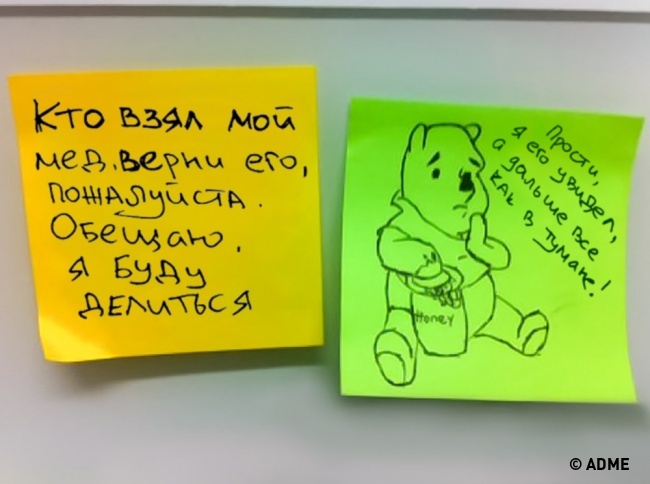 Кто взял мой
мед, верни его,
пожалуйста.
Обещаю,
я буду
делиться
Прости,
я его увидел,
а дальше все
как в тумане!
Honey
© ADME